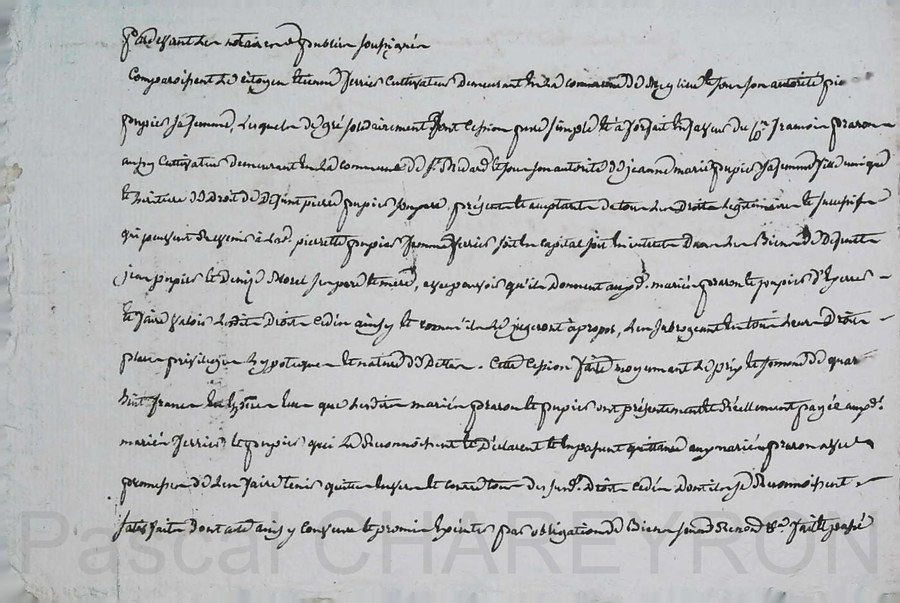 Pardevant les notaires publics soussignés
Comparoissent le citoyen Etienne ferrier Cultivateur demeurant en la commune de et sous son autorité
pupier sa femme, lesquels de gré solidairement font cession pure simple et à forfait en faveur du Cn. françois praron
aussy Cultivateur demeurant en la commune de St. Médard et sous son autorité de jeanne marie pupier sa femme fille unique
et héritiere de droit de Défunt pierre pupier son pere, présents et acceptants de tous les Droits légitimaires et
qui peuvent devenir à lad. pierrette pupier femme ferrier soit en capital soit en interets dans les Biens de Défunts
jean pupier et Denize Morel ses pere et mere, avec pouvoir qu'ils Donnent auxd. mariés praron et pupier d'Exercer
et faire valoir lesdits Droits cédés ainsy et comme ils le jugeront à propos, les subrogeant en tous leurs Droits
place privilege hypoteque et nature de Dettes. Cette Cession faite moyennant le prix et somme de quar
huit francs que lesdits mariés praron et pupier ont présentement et réellement payée auxd.
mariés ferrier et pupier qui le reconnoissent et Déclarent et en passent quittance auxd mariés praron avec
promesse de les faire tenir quittes envers et contre tous des susd. Droits cédés Dont ils se reconnoissent
satisfaits Dont acte ainsy convenu et promis par obligation de Biens fait et passé
Pascal CHAREYRON